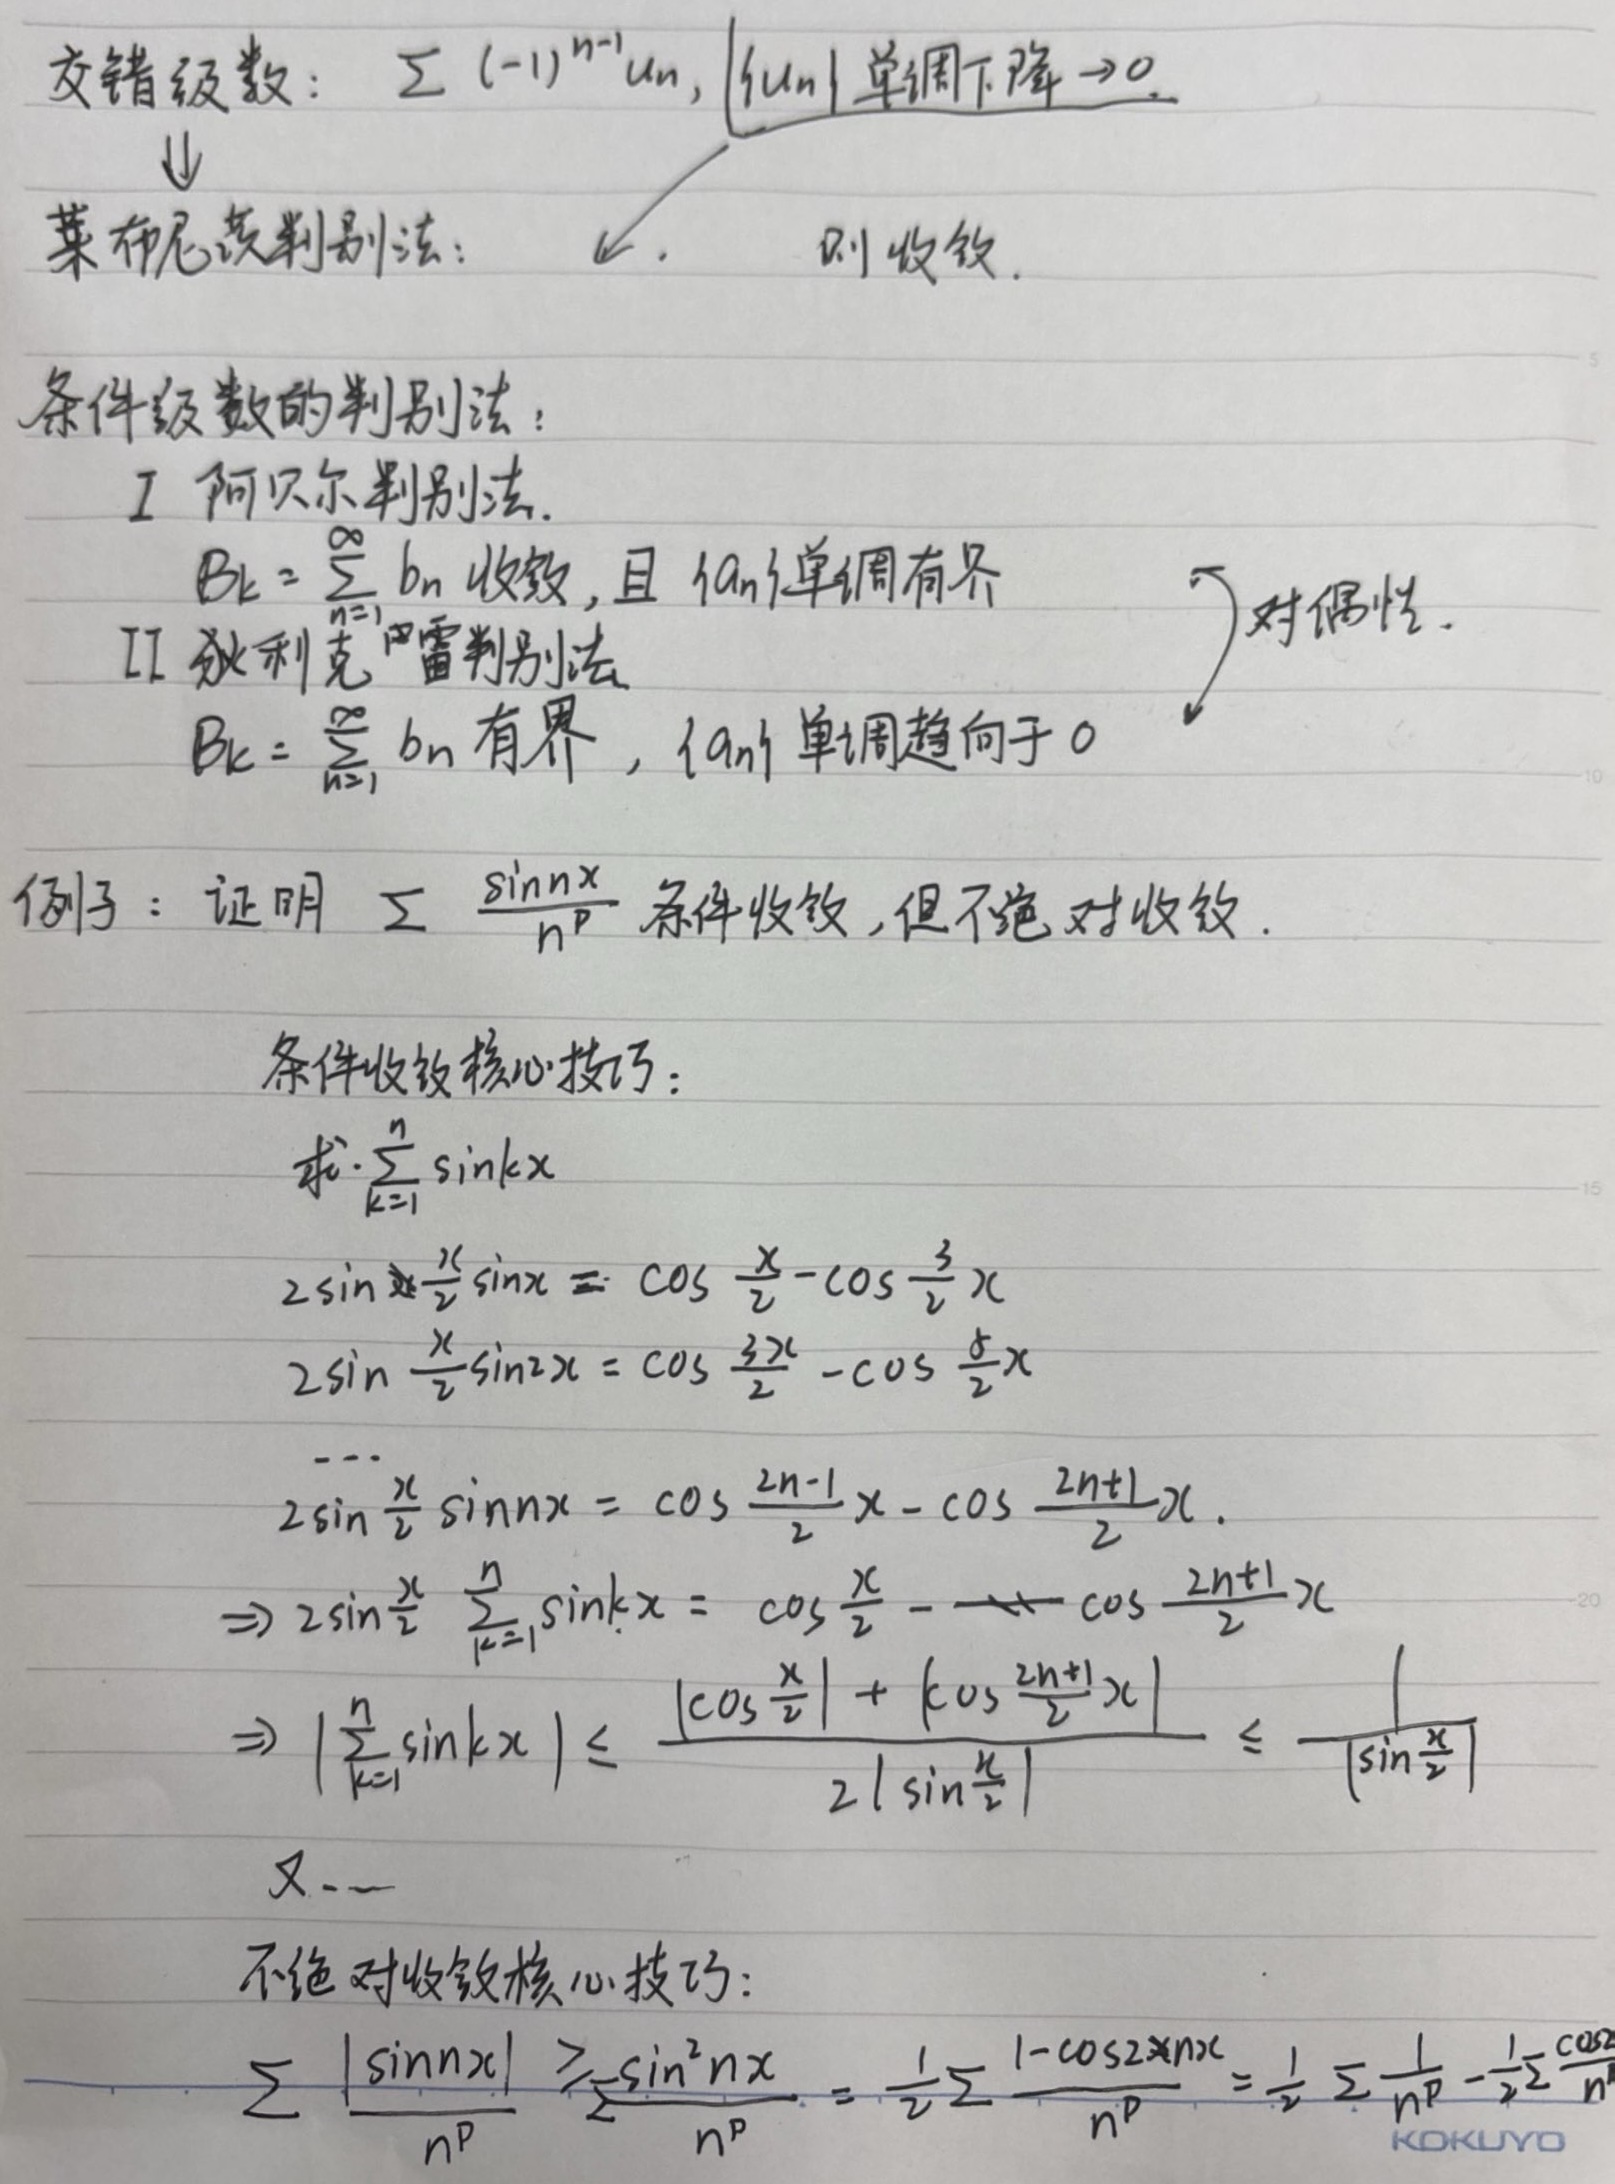 交错级数: Σ (-1)^{n-1} u_n, {u_n} 单调下降 → 0.
⇓
莱布尼茨判别法: ↙ . 则收敛.
条件级数的判别法:
I 阿贝尔判别法.
B_k = Σ_{n=1}^{∞} b_n 收敛, 且 {a_n} 单调有界
对偶性.
II 狄利克雷判别法
B_k = Σ_{n=1}^{∞} b_n 有界, {a_n} 单调趋向于 0
例子: 证明 Σ \frac{sin nx}{n^p} 条件收敛, 但不绝对收敛.
条件收敛核心技巧:
求 Σ_{k=1}^{n} sin kx
2 sin \frac{x}{2} sin x = cos \frac{x}{2} - cos \frac{3}{2} x
2 sin \frac{x}{2} sin 2x = cos \frac{3x}{2} - cos \frac{5}{2} x
...
2 sin \frac{x}{2} sin nx = cos \frac{2n-1}{2} x - cos \frac{2n+1}{2} x.
⇒ 2 sin \frac{x}{2} Σ_{k=1}^{n} sin kx = cos \frac{x}{2} - cos \frac{2n+1}{2} x
⇒ | Σ_{k=1}^{n} sin kx | ≤ \frac{|cos \frac{x}{2}| + |cos \frac{2n+1}{2} x|}{2 |sin \frac{x}{2}|} ≤ \frac{1}{|sin \frac{x}{2}|}
又...
不绝对收敛核心技巧:
Σ \frac{|sin nx|}{n^p} ≥ Σ \frac{sin^2 nx}{n^p} = \frac{1}{2} Σ \frac{1 - cos 2nx}{n^p} = \frac{1}{2} Σ \frac{1}{n^p} - \frac{1}{2} Σ \frac{cos2}{n^p}
KOKUYO